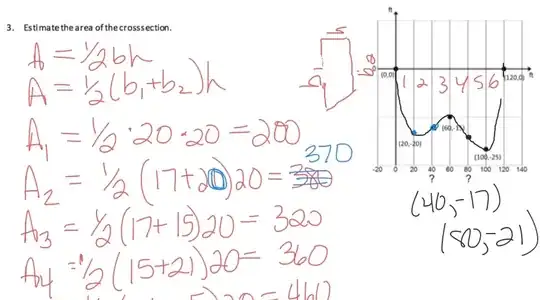 3. Estimate the area of the cross section.
A = 1/2bh
A = 1/2(b₁+b₂)h
A₁ = 1/2 · 20 · 20 = 200
370
A₂ = 1/2 (17+20)20 = 380
A₃ = 1/2(17+15)20 = 320
A₄ = 1/2(15+21)20 = 360
5)20 = 460
ft
(0,0)
1 2 3 4 5 6
(120,0)
ft
(20,-20)
(60,-15)
(100,-25)
-20 0 20 40 60 80 100 120 140
? ?
(40,-17)
(80,-21)